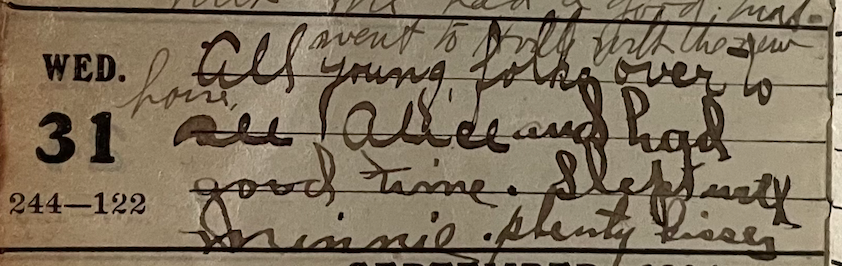 had a good
went to with the new
WED. All young folks over to
horse,
31 see Alice and had
good time. Slept with
244—122
Minnie. plenty kisses